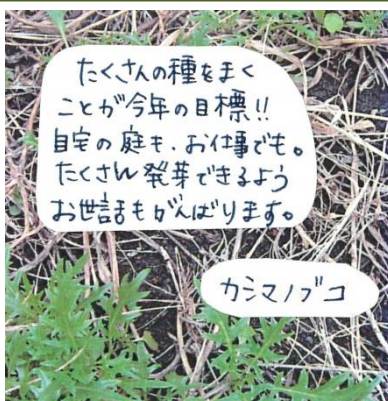 たくさんの種をまく
ことが今年の目標!!
自宅の庭も、お仕事でも。
たくさん発芽できるよう
お世話もがんばります。
カシマノブコ